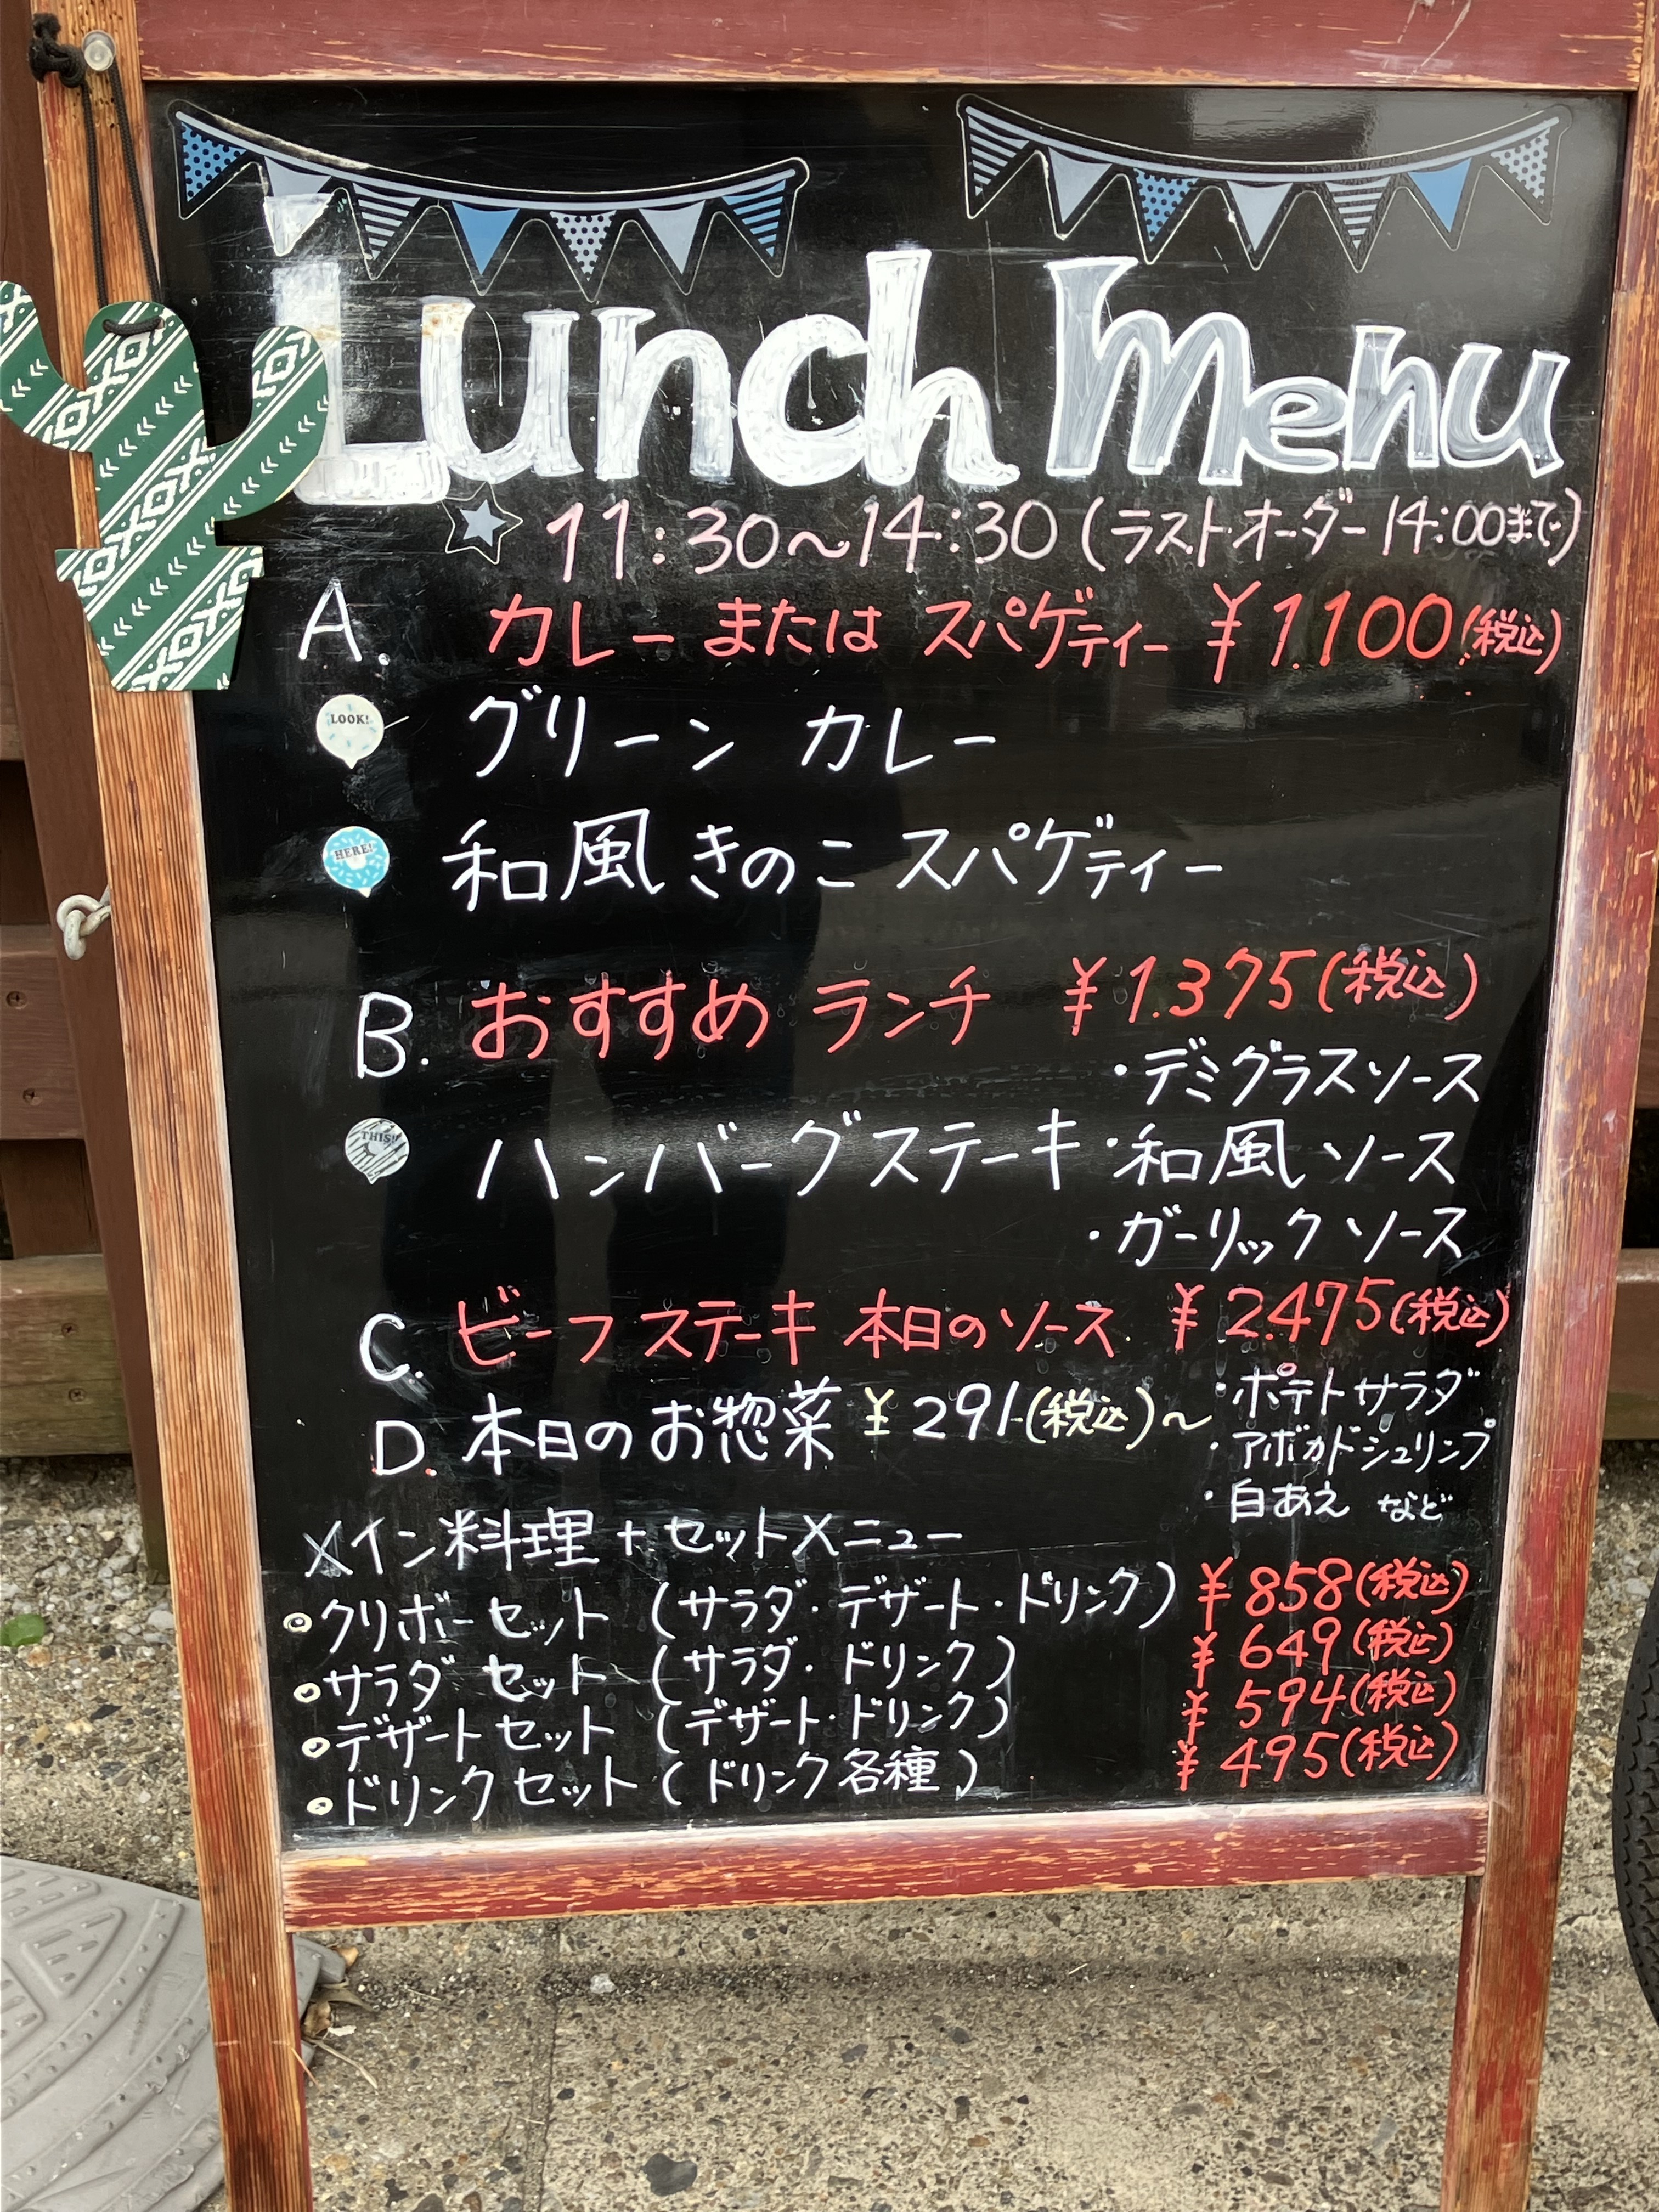 Lunch Menu
11:30〜14:30(ラスト・オーダー14:00まで)
A. カレー または スパゲティー ¥1.100(税込)
LOOK! グリーン カレー
HERE! 和風きのこスパゲティー
B. おすすめ ランチ ¥1.375(税込)
・デミグラスソース
THIS! ハンバーグステーキ・和風ソース
・ガーリックソース
C. ビーフステーキ 本日のソース ¥2.475(税込)
D. 本日のお惣菜 ¥291(税込)〜
・ポテトサラダ
・アボカドシュリンプ
・白あえ など
メイン料理+セットメニュー
クリボーセット (サラダ・デザート・ドリンク) ¥858(税込)
サラダ セット (サラダ・ドリンク) ¥649(税込)
デザートセット (デザート・ドリンク) ¥594(税込)
ドリンクセット (ドリンク各種) ¥495(税込)